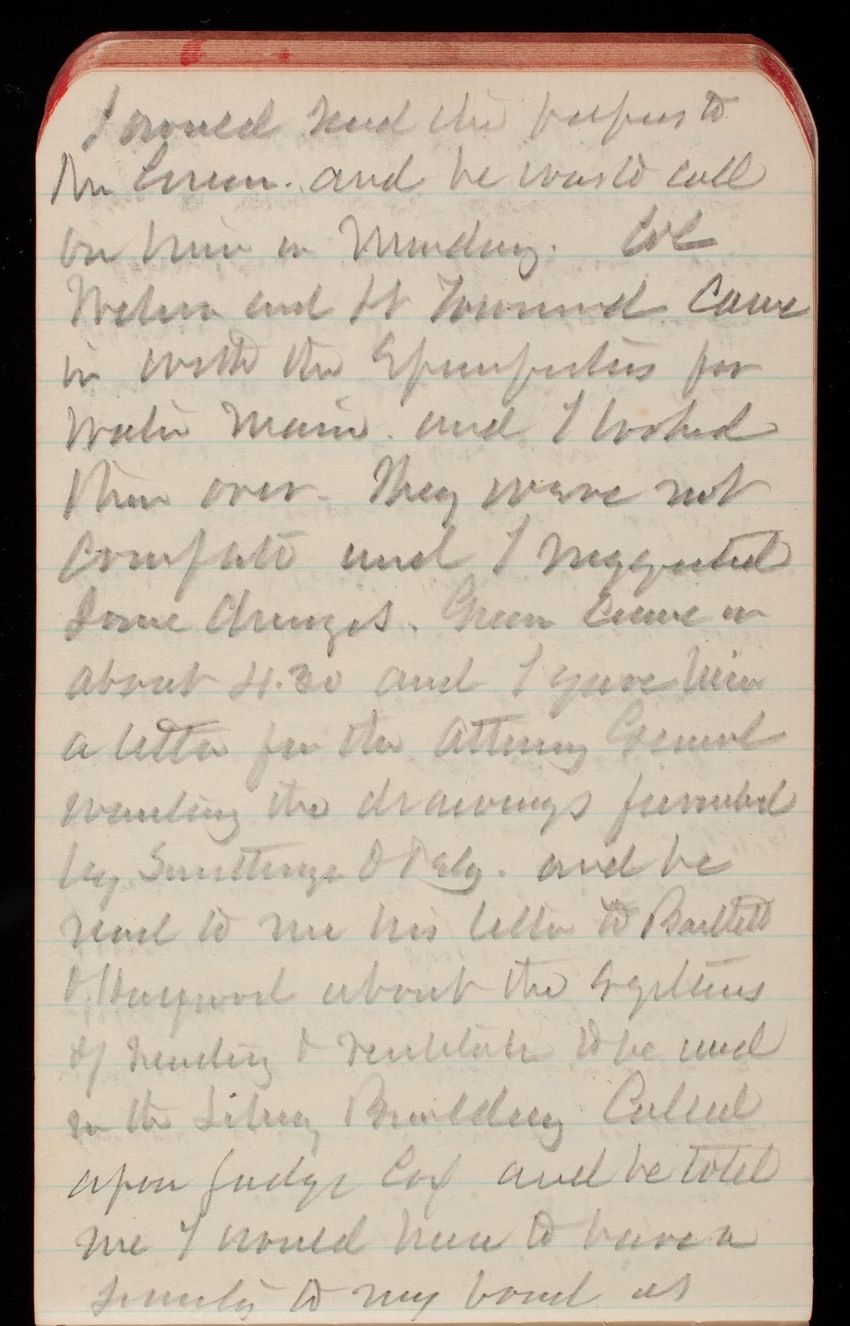 I would send the papers to
Mr Green. and he would call
on him on Monday. Col
Wilson and Lt Townsend came
in with the Specificatis for
Water Main. and I looked
them over. They were not
complete and I suggested
some changes. Green came in
about 4.30 and I gave him
a letter for the Attorney General
wanting the drawings furnished
by Smithmyer & Pelz. and he
read to me his letter to Bartlett
& Hayward about the systems
of heating & ventilation to be used
in the Library Building Called
upon Judge Cox and he told
me I would have to have a
security to my bond as